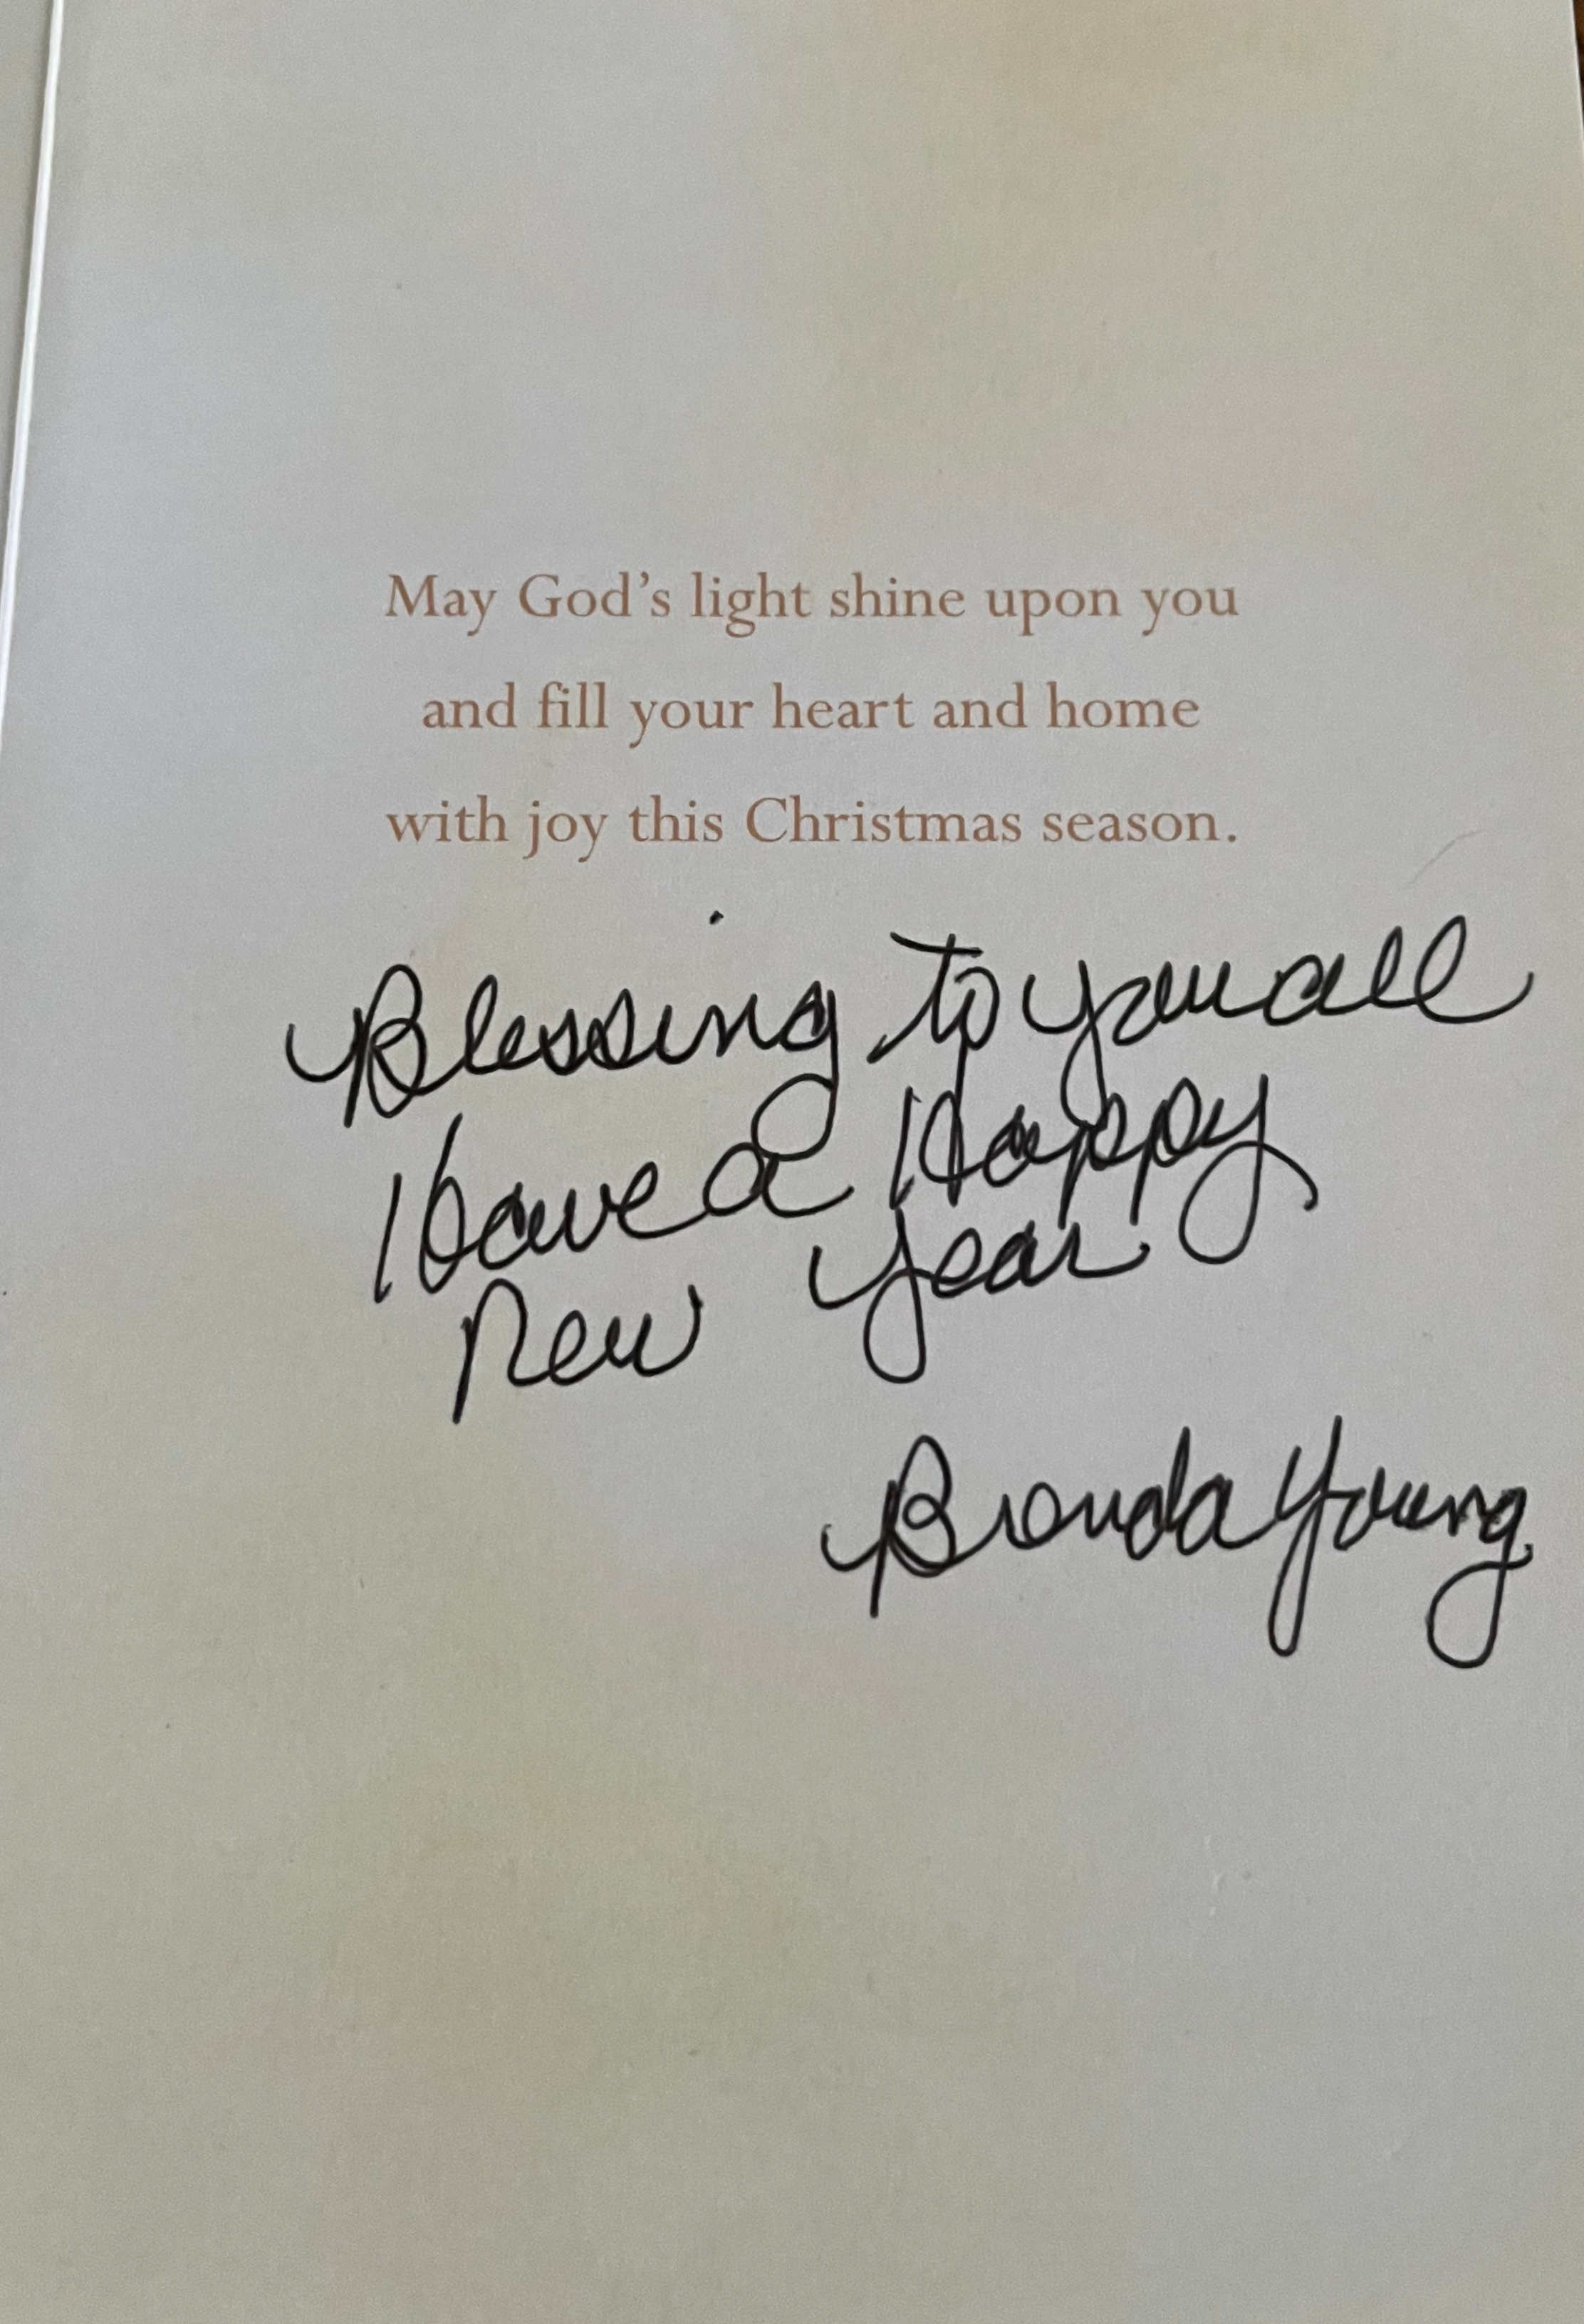 May God's light shine upon you
and fill your heart and home
with joy this Christmas season.
Blessing to you all
Have a Happy
New Year
Brenda Young